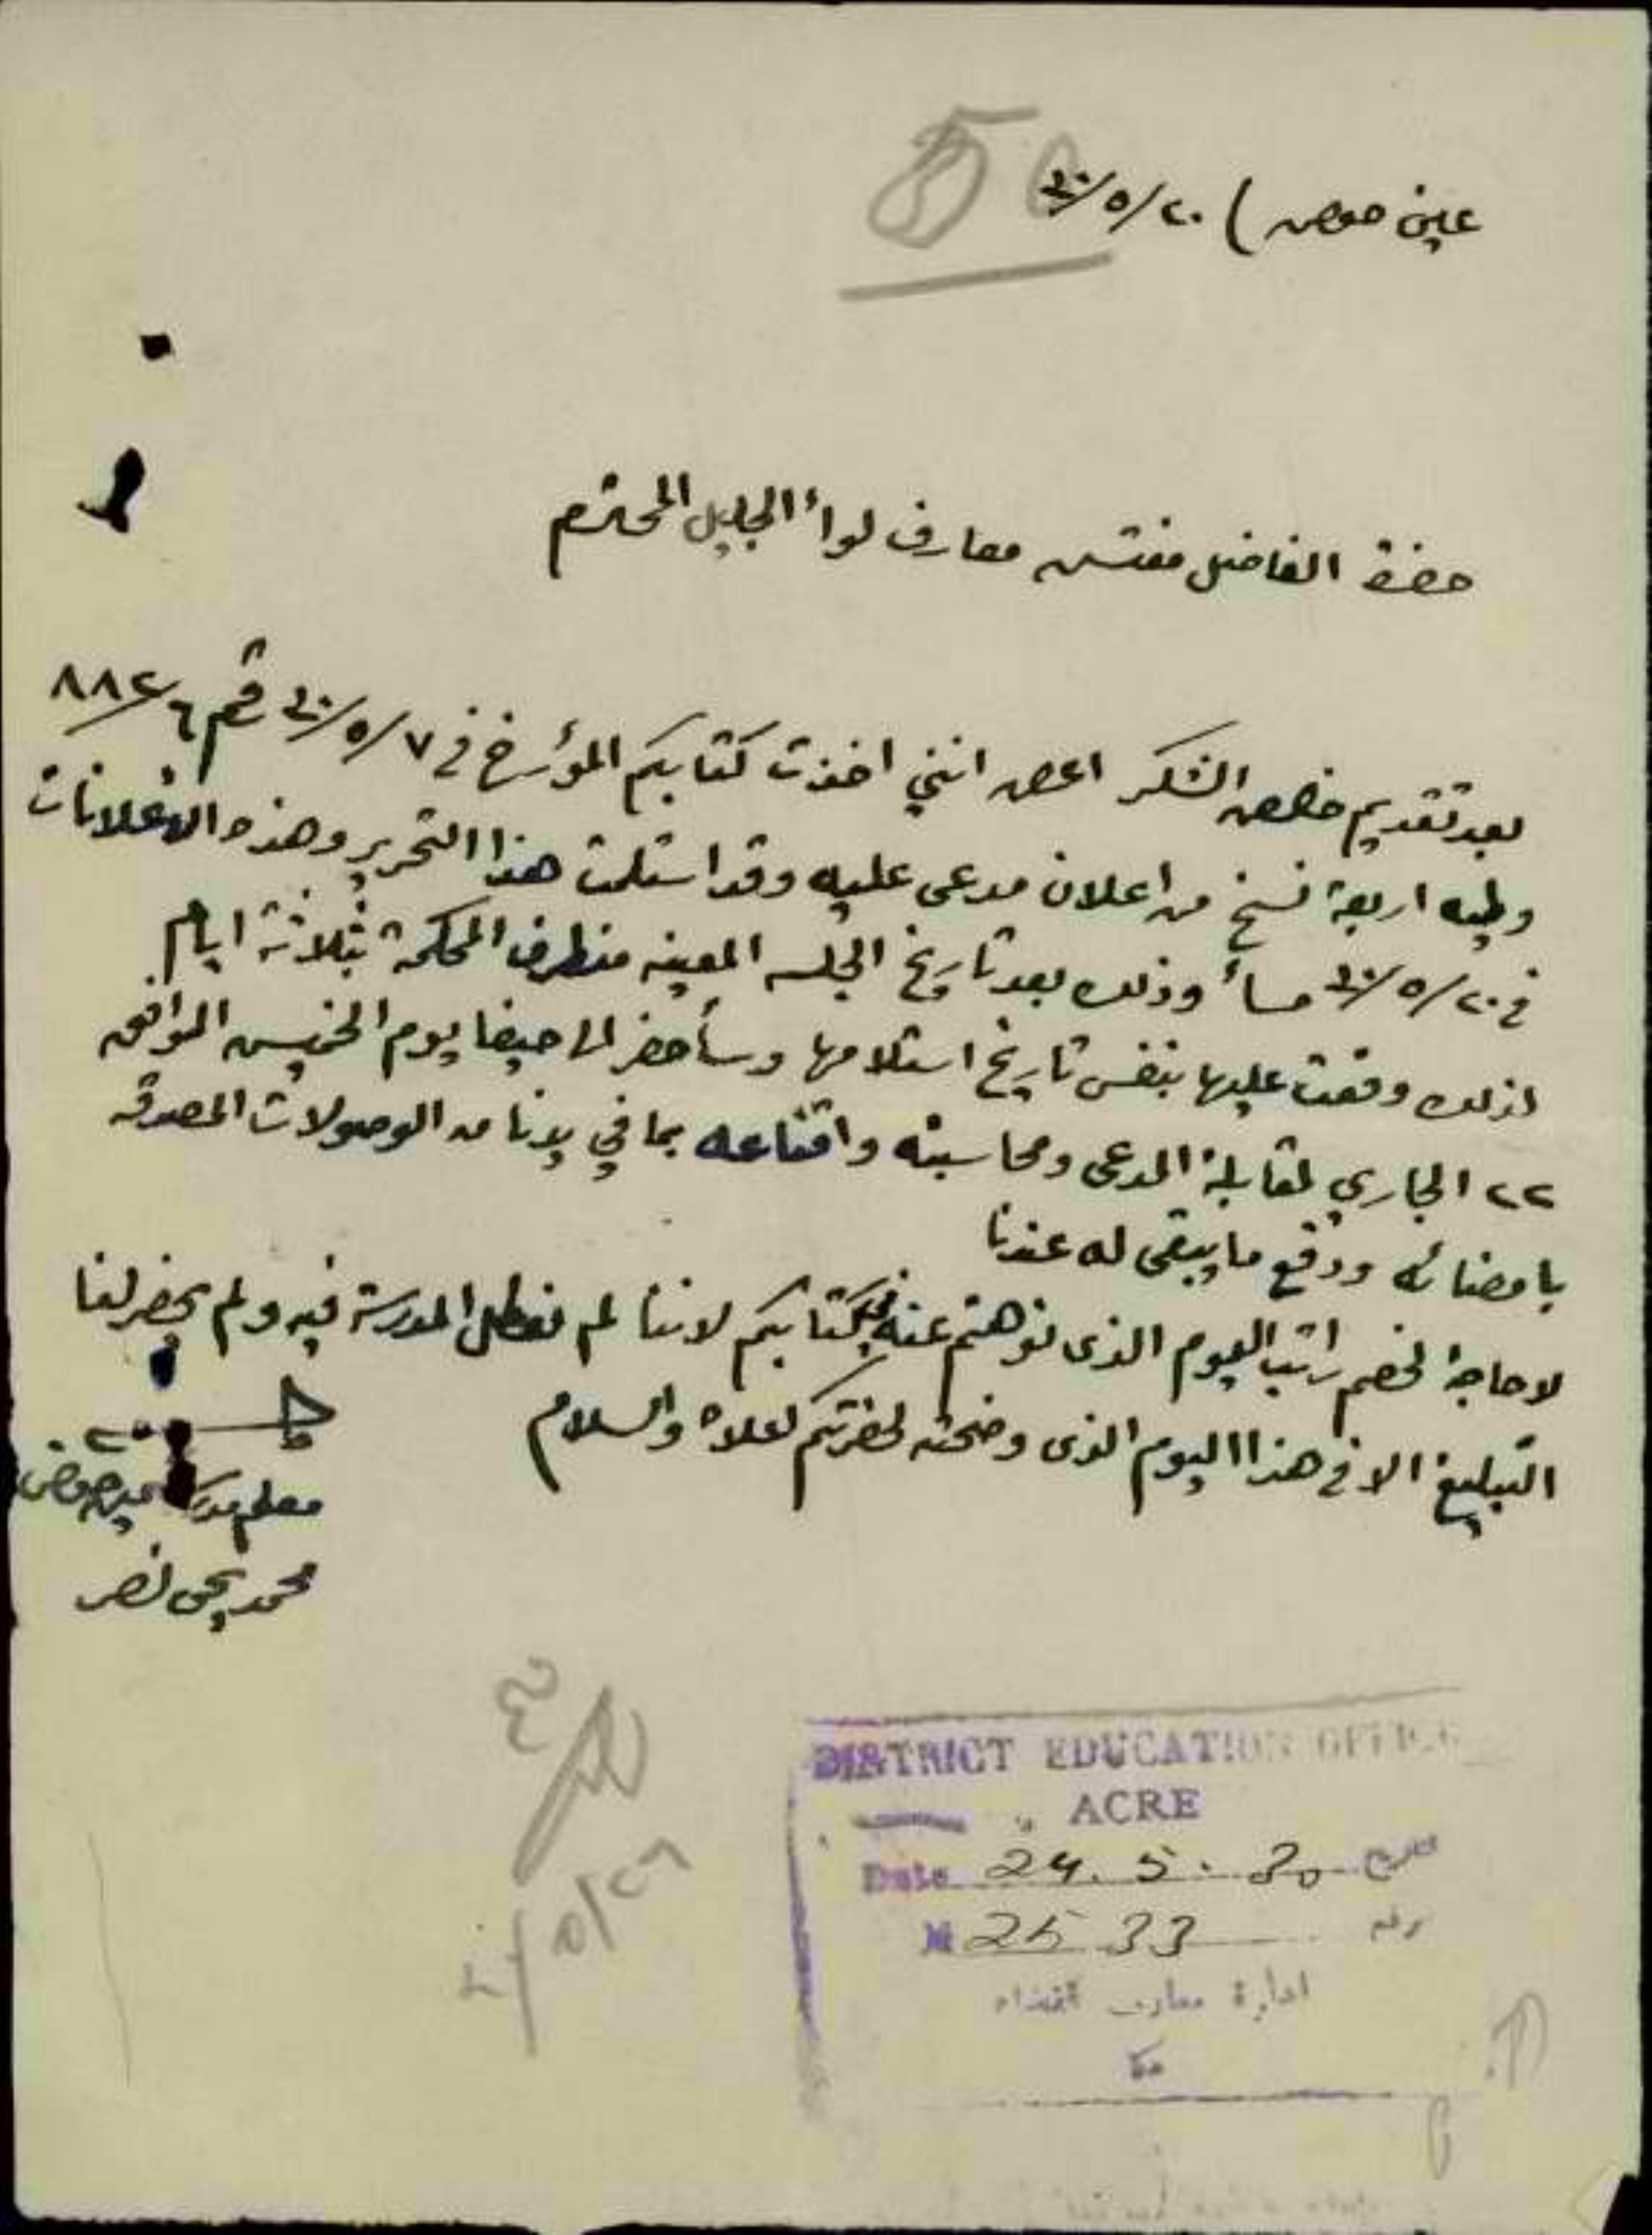 50
عين حوض ) ٢٠/٥/٣٠
حضرة الفاضل مفتش معارف لواء الجليل المحترم
بعد تقديم خالص الشكر اعرض انني اخذت كتابكم المؤرخ في ٧/٥/٣٠ رقم ٨٨٢/٦
وطيه اربعة نسخ من اعلان مدعى عليه وقد استلمت هذا التحرير وهذه الاعلانات
في ٢٠/٥/٣٠ مساءً وذلك بعد تاريخ الجلسه المعينه منطرف المحكمة بثلاثة ايام
لذلك وقعت عليها بنفس تاريخ استلامها وسأحضر الى حيفا يوم الخميس الموافق
٢٢ الجاري لمقابلة المدعي ومحاسبته واقناعه بما في يدنا من الوصولات المصدقه
بامضائه ودفع ما يبقى له عندنا
لا حاجة لخصم راتب اليوم الذى نوهتم عنه بكتابكم لاننا لم نعطل المدرسة فيه ولم يحضر لنا
التبليغ الا في هذا اليوم الذى وضحته لحضرتكم اعلاه والسلام
معلم مدرسة عين حوض
محمد يحيى نصر
DISTRICT EDUCATION OFFICE
ACRE
Date 24. 5. 30 تاريخ
№ 2533 رقم
ادارة معارف قضاء
عكا